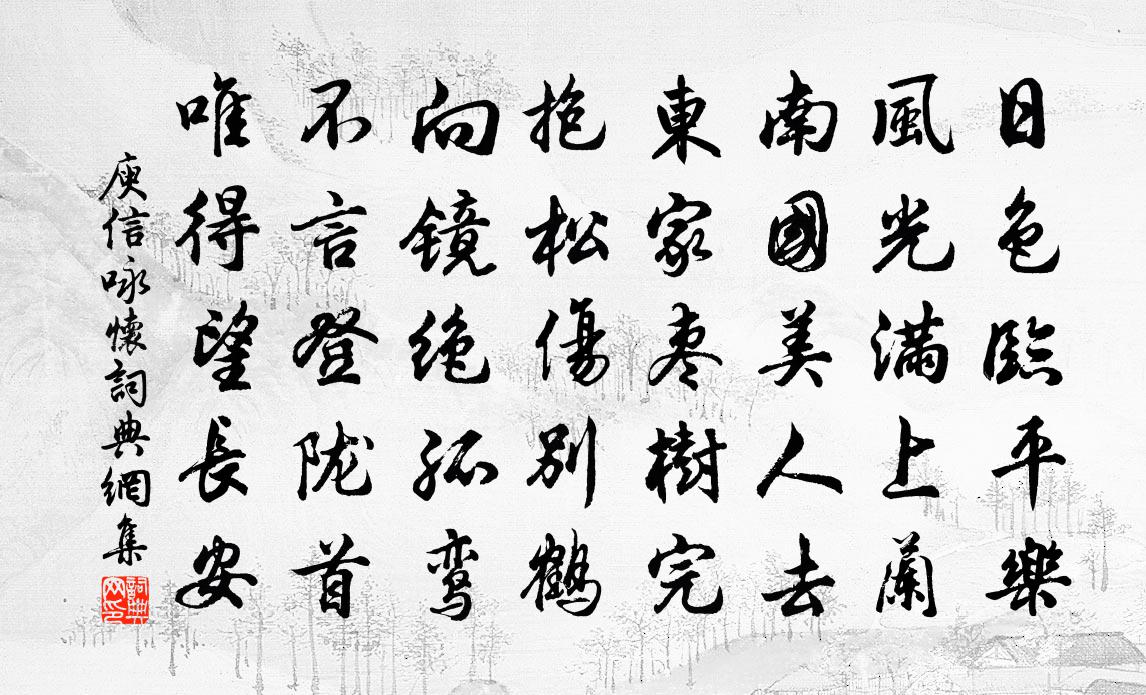 日色臨平樂
風光满上蘭
南國美人去
東家枣樹完
抱松傷别鶴
向镜绝孤鸾
不言登陇首
唯得望長安
庾信咏懷詞典網集
詞典網印